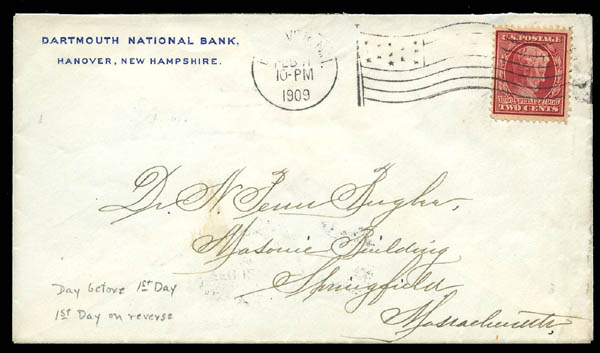 DARTMOUTH NATIONAL BANK.
HANOVER, NEW HAMPSHIRE.
FEB 11
10-PM
1909
U.S. POSTAGE
1809 FEBY 12 1909
TWO CENTS
Dr. N. Penn
Masonic Building
Springfield,
Massachusetts,
Day before 1st Day
1st Day on reverse